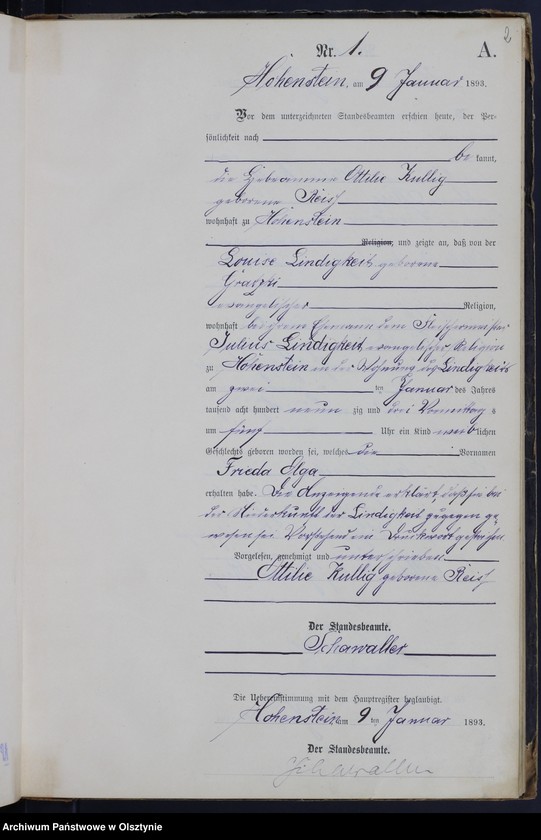 2
Nr. 1. A.
Hohenstein, am 9 Januar 1893.
Vor dem unterzeichneten Standesbeamten erschien heute, der Per-
sönlichkeit nach
be kannt,
die Hebeamme Ottilie Kullig
geborene Reiß
wohnhaft zu Hohenstein
Religion, und zeigte an, daß von der
Louise Lindigkeit geborene
evangelischer Religion,
wohnhaft bei ihrem Ehemann dem Fleischermeister
Julius Lindigkeit, evangelischer Religion
zu Hohenstein in der Wohnung des Lindigkeit
am zwei ten Januar des Jahres
tausend acht hundert neun zig und drei Vormittag s
um fünf Uhr ein Kind weiblichen
Geschlechts geboren worden sei, welches die Vornamen
Frieda Olga
erhalten habe. Die Anzeigende erklärt, daß sie bei
der Niederkunft der Lindigkeit zugegen ge-
wesen sei. Vorstehend ein Druckwort gestrichen
Vorgelesen, genehmigt und unterschrieben
Ottilie Kullig geborene Reiß
Der Standesbeamte.
Schawaller
Die Uebereinstimmung mit dem Hauptregister beglaubigt.
Hohenstein, am 9 ten Januar 1893.
Der Standesbeamte.
Schawaller
Archiwum Państwowe w Olsztynie